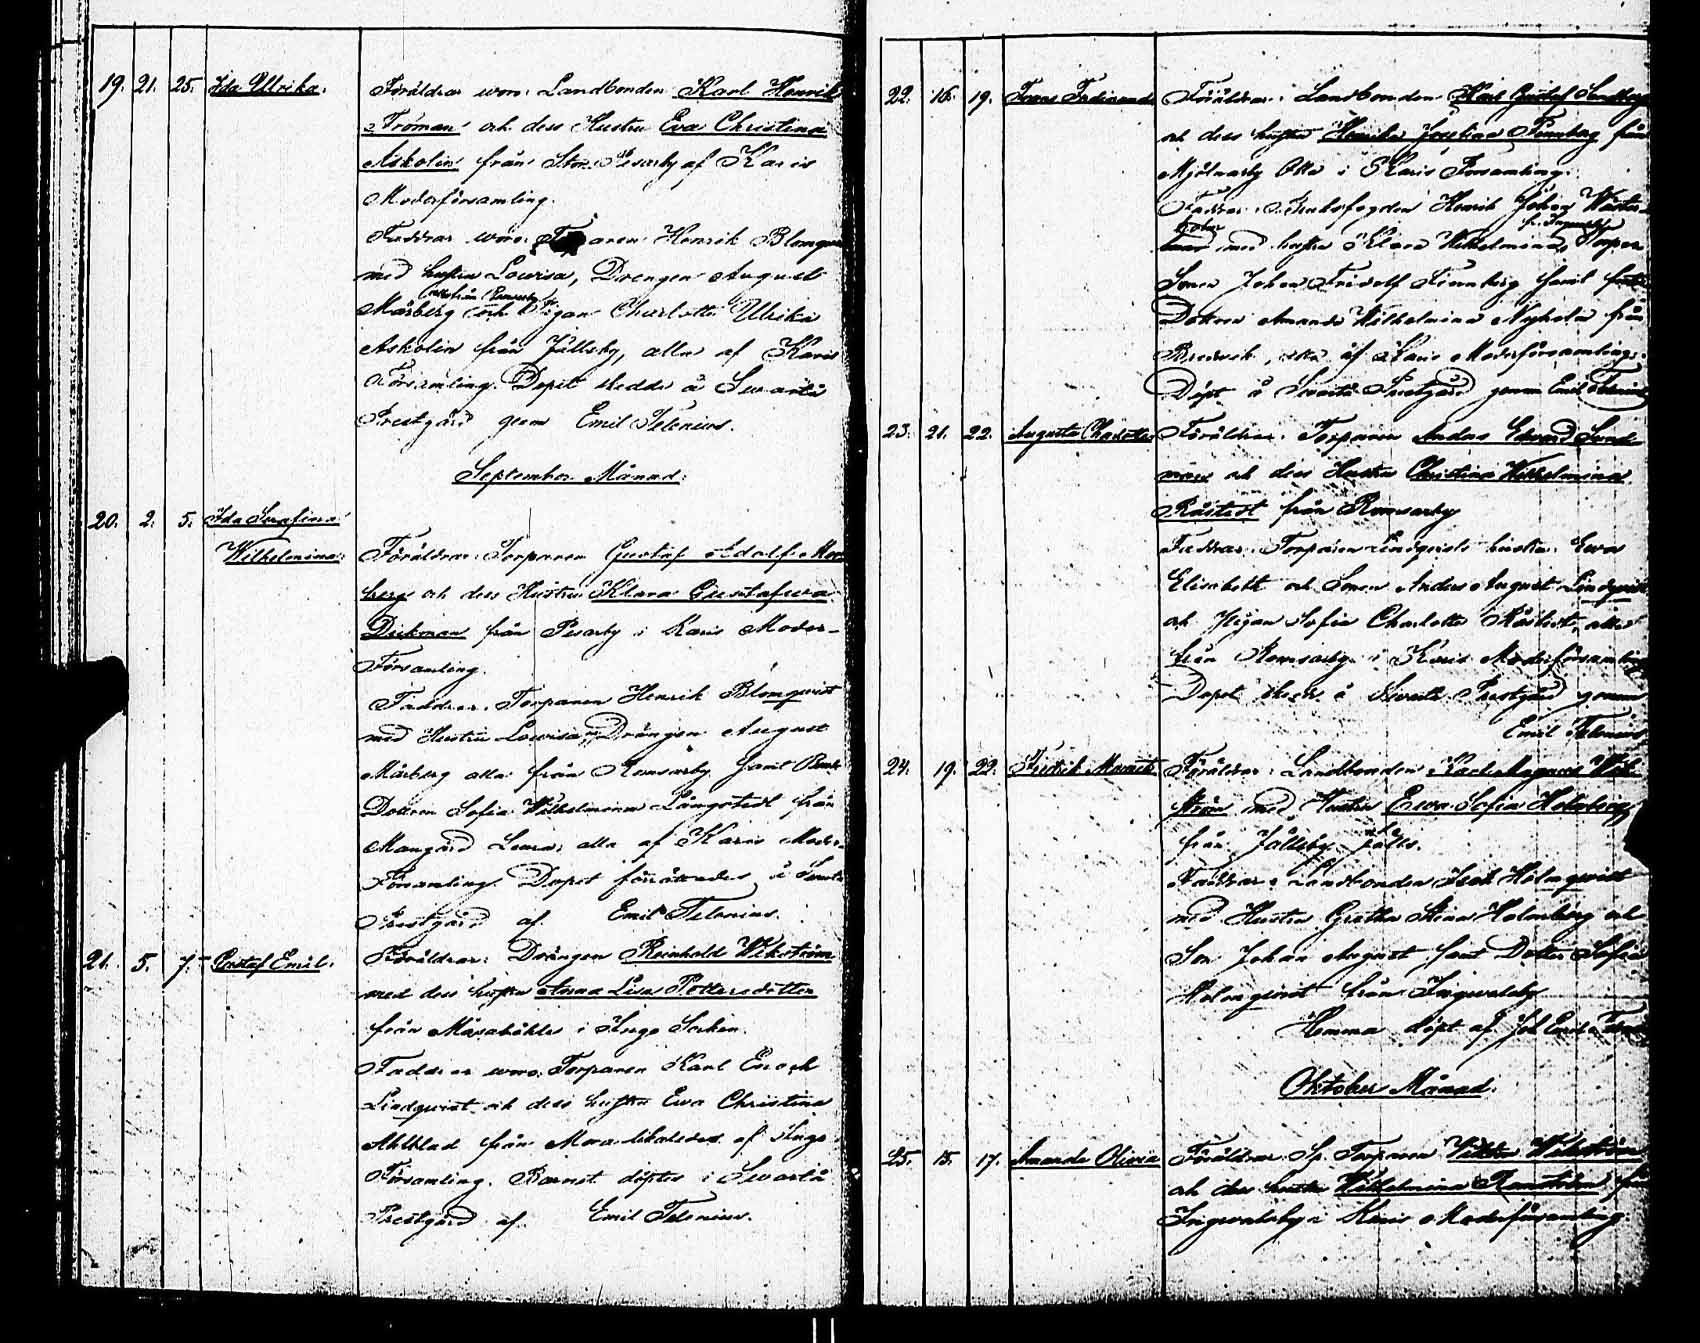 19. 21. 25. Ida Ulrika. Föräldrar woro: Landbonden Karl Henrik
Froman och dess Hustru Eva Christina
Askolin från Stor Pesarby af Karis
Moderförsamling.
Faddrar woro: Henrik Blomqvist
med hustru Lowisa, Drengen August
från Romsarby
Mårberg och Pigan Charlotta Ulrika
Askolin från Jällsby, alla af Karis
Församling. Dopet skedde å Swartå
Prestgård genom Emil Telenius.
September Månad:
20. 2. 5. Ida Serafina
Wilhelmina. Föräldrar: Torparen Gustaf Adolf Mor
berg och dess Hustru Klara Gustafwa
Dickman från Pesarby i Karis Moder-
Församling.
Faddrar. Torparen Henrik Blomqvist
med Hustru Lowisa, Drängen August
Mårberg alla från Romsarby samt
Dottren Sofia Wilhelmina Långstedt från
Mangård alla af Karis Moder-
Församling. Dopet förrättades å Swartå
Prestgård af Emil Telenius.
21. 5. 7. Gustaf Emil. Föräldrar: Drängen Reinhold Wikström
med dess hustru Anna Lisa Pettersdotter
från Marabäkle i Ingo Socken.
Faddrar woro: Torparen Karl Enoch
Lindqvist och dess hustru Ewa Christina
Ahlblad från af Ingo
Församling. Barnet döptes i Swartå
Prestgård af Emil Telenius.
22. 16. 19. Frans Ferdinand Föräldrar: Landbonden Karl Gustaf
och dess hustru Henrika Josefina Finnberg från
Mjölnarby Otta i Karis Församling.
Faddrar: Henrik Johan Wäster-
holm fr. Ingwalsby
med hustru Klara Wilhelmina, Torpare
Sonen Johan Fridolf Finnberg samt
Dottren Amanda Wilhelmina Nyholm från
Bredvik, alla af Karis Moderförsamling.
Döpt å Swartå Prestgård genom Emil Telenius
23. 21. 22. Augusta Charlotta Föräldrar: Torparen Anders Edvard Sund
man och dess Hustru Christina Wilhelmina
Råstedt från Romsarby
Faddrar: Torparen Lindqvists hustru Ewa
Elisabeth och Sonen Anders August Lindqvist
och Pigan Sofia Charlotta Råstedt, alla
från Romsarby i Karis Moderförsamling
Dopet skedde å Swartå Prestgård genom
Emil Telenius
24. 19. 22. Fredrik Mauritz Föräldrar: Landbonden Karl Magnus Wik-
ström med Hustru Ewa Sofia Holmberg
från Jällsby
Faddrar: Landbonden Isak Holmqvist
med Hustru Gretha Stina Holmberg och
Son Johan August samt Dotter Sofia
Holmqvist från Ingwalsby
Hemma döpt af Joh Emil
Oktober Månad:
25. 15. 17. Amanda Olivia Föräldrar: Sp. Torparen Wiktor Wikström
och dess hustru Wilhelmina Ranström från
Ingwalsby i Karis Moderförsamling